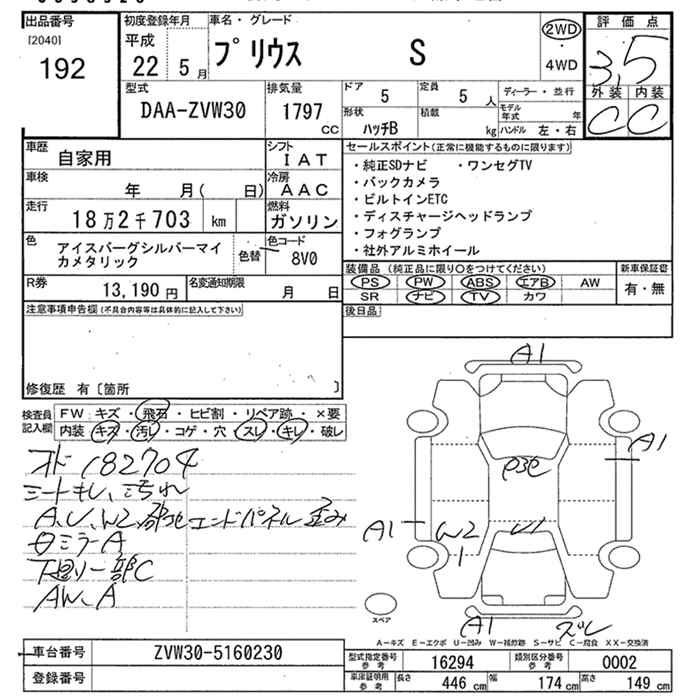 出品番号
[2040]
192
初度登録年月
平成
22 5月
車名・グレード
プリウス S
2WD
・
4WD
評価点
3,5
外装 内装
C C
型式
DAA-ZVW30
排気量
1797
cc
ドア
5
定員
5 人
ディーラー・並行
モデル年式 年
形状
ハッチB
積載
kg
ハンドル 左・右
車歴
自家用
シフト
IAT
車検
年 月( 日)
冷房
AAC
走行
18万2千703 km
燃料
ガソリン
色
アイスバーグシルバーマイ
カメタリック
色替
色コード
8V0
R券
13,190 円
名変通知期限
月 日
セールスポイント(正常に機能するものに限ります)
・純正SDナビ ・ワンセグTV
・バックカメラ
・ビルトインETC
・ディスチャージヘッドランプ
・フォグランプ
・社外アルミホイール
装備品 (純正品に限り○をつけてください)
PS PW ABS エアB AW
SR ナビ TV カワ
新車保証書
有・無
後日品
注意事項申告欄(不具合内容等は具体的に記入して下さい)
修復歴 有〔箇所 〕
検査員
記入欄
FW キズ・飛石・ヒビ割・リペア跡・×要
内装 キズ・汚レ・コゲ・穴・スレ・キレ・破レ
オド 182704
シートキレ、汚れ
A、U、W2、部他 エンドパネル歪み
ミラーA
下廻り一部C
AW、A
A1
A1
P3C
A1
W2
U1
1
A1
ズレ
スペア
A-キズ E-エクボ U-凹み W-補修跡 S-サビ C-腐食 XX-交換済
車台番号
ZVW30-5160230
登録番号
型式指定番号
参考
16294
類別区分番号
参考
0002
車庫証明用
参考
長さ 446 cm 幅 174 cm 高さ 149 cm